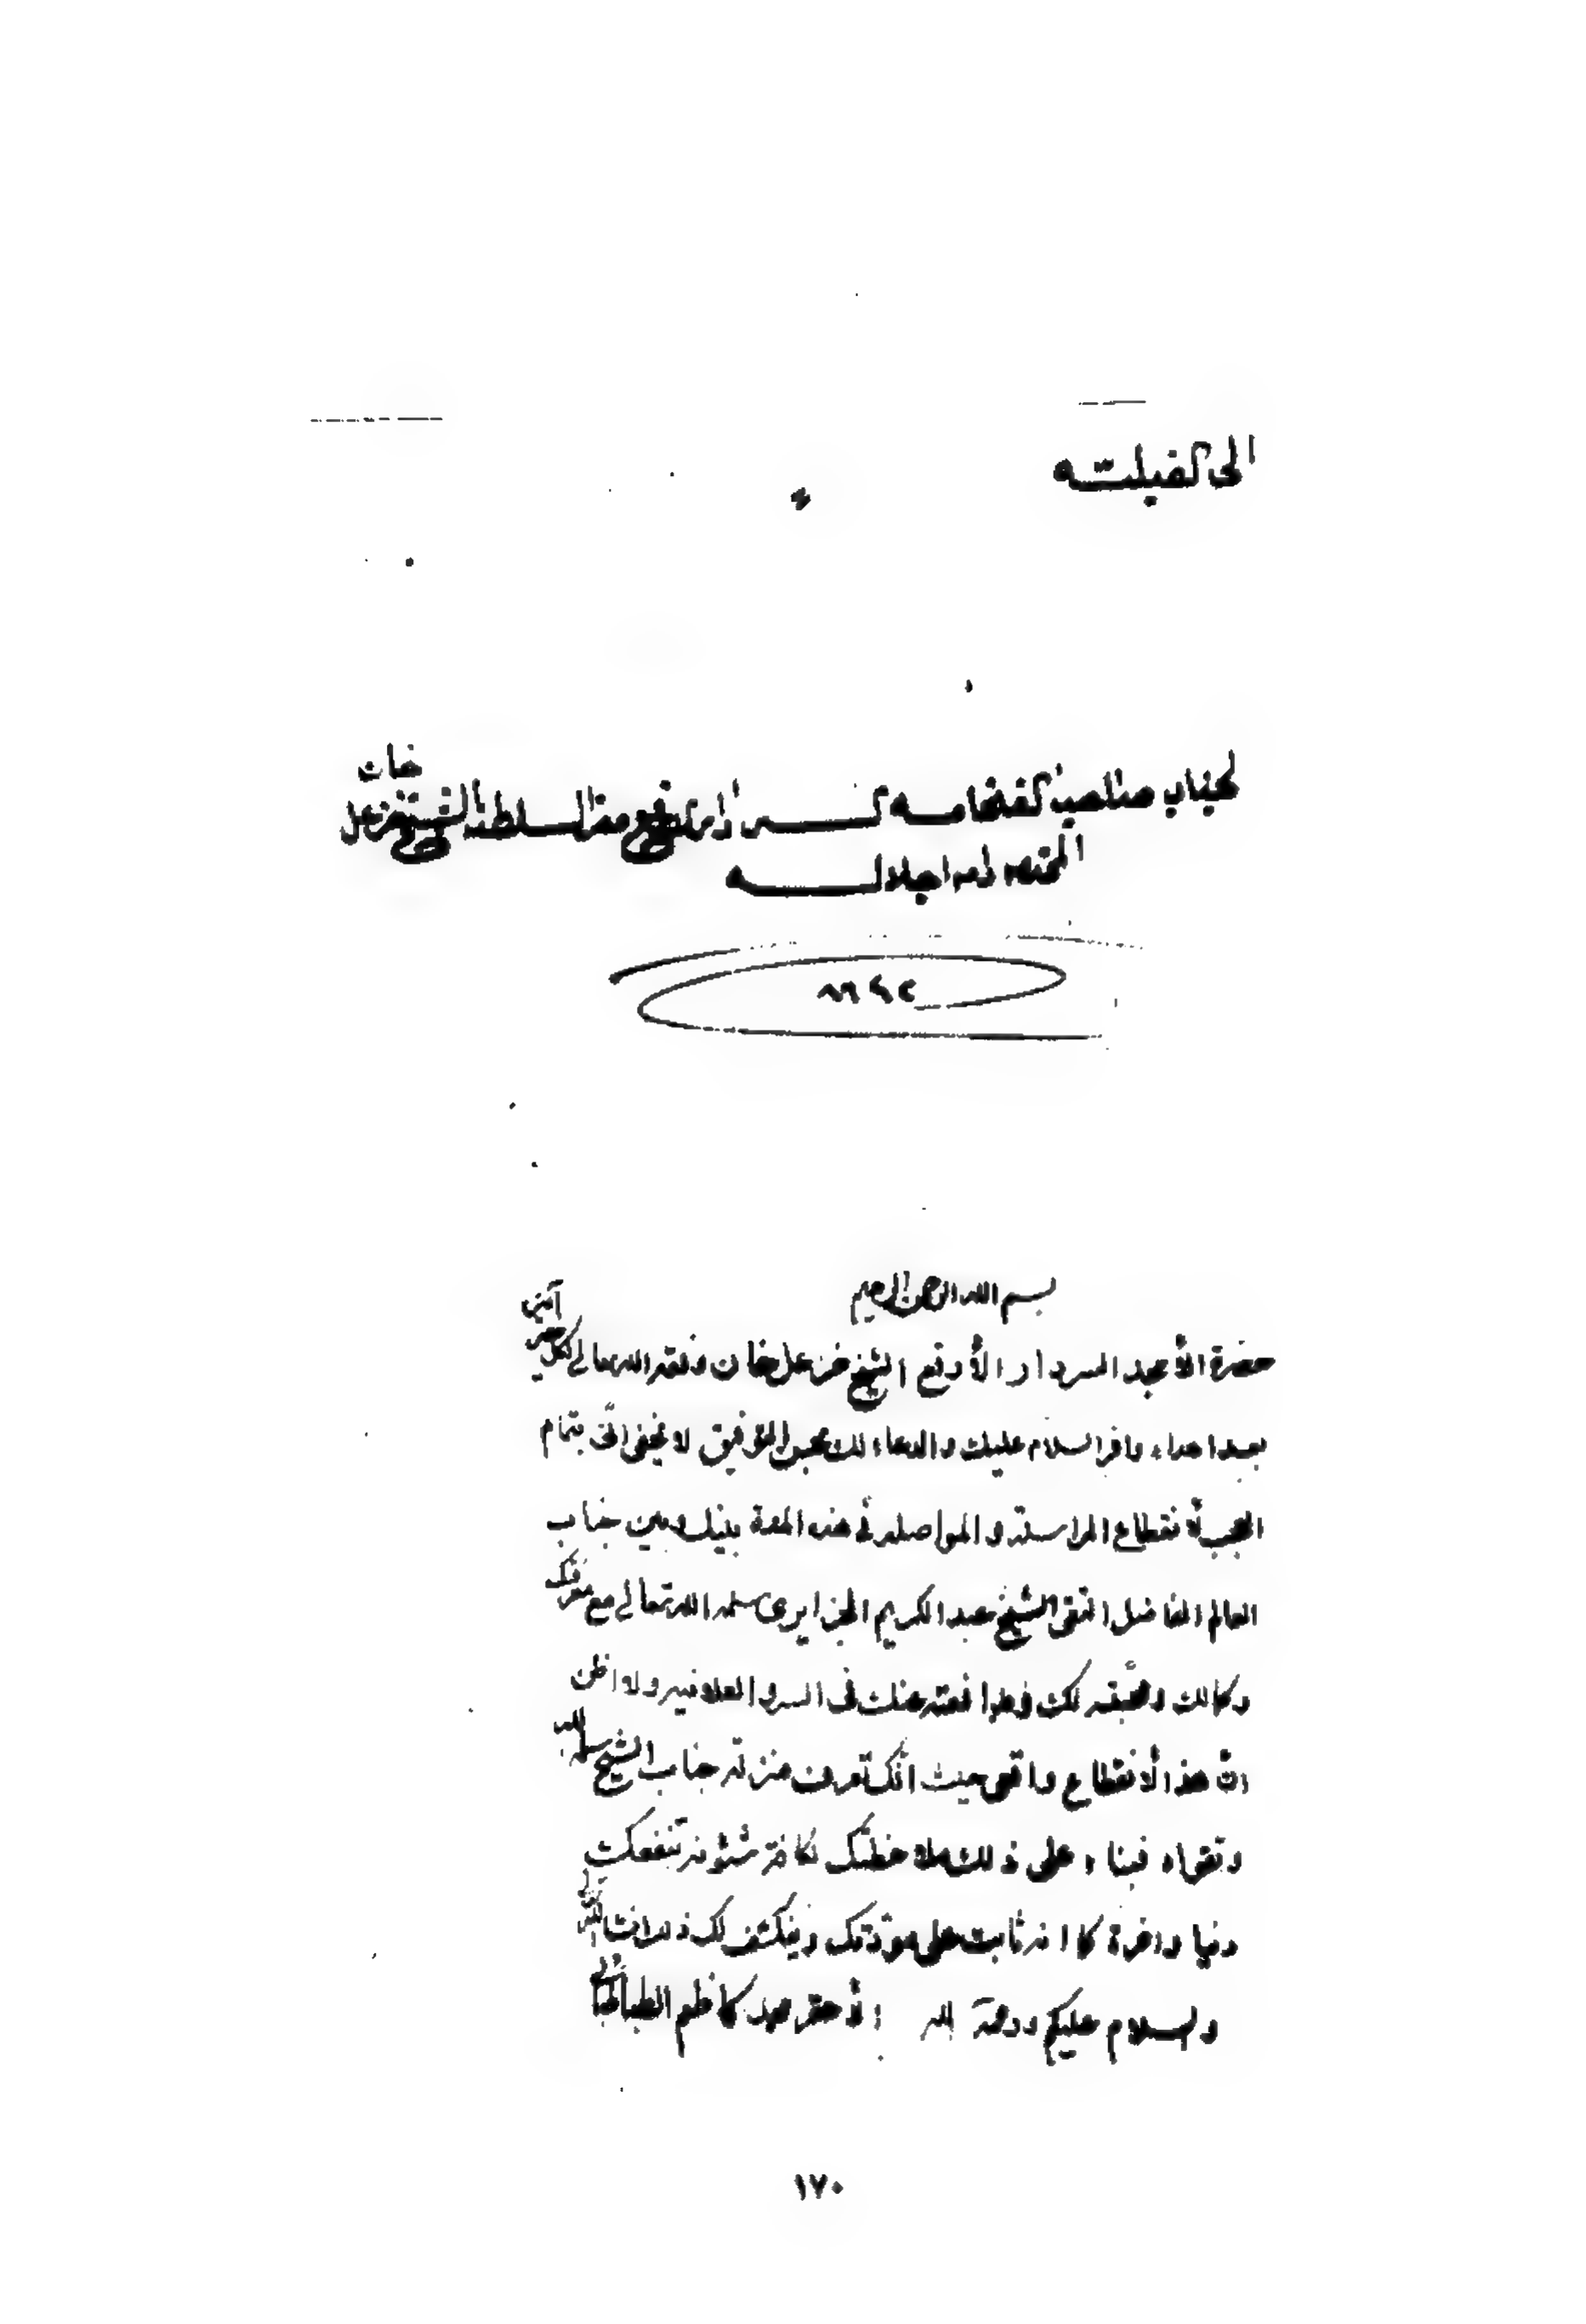 الى الفيلية
لجناب صاحب الفخامه السردار ارفع معز السلطنة الشيخ خزعل خان
المحترم دام اجلاله
٨٦٤٢
بسم الله الرحمن الرحيم
حضرة الأمجد السردار الأرفع الشيخ خزعل خان وفقه الله تعالى لكل خير آمين
بعد اهداء وافر السلام عليك والدعاء لك بحسن التوفيق لا يخفى انى بتمام
العجب لأنقطاع المراسلة و المواصلة فى هذه المدة بينك وبين جناب
العالم الفاضل التقى الشيخ عبد الكريم الجزايرى سلمه الله تعالى مع معرفتك
وكمالك ومحبته لك عنك فى السر و العلانيه ولا اظن
ان هذا الأنقطاع واقعى حيث انك تعرف منزلة جناب الشيخ سلمه الله
وتقواه فبناء على ذلك ملاحظتك لكافة شؤنه تنفعك
دنيا واخرة كما انه ثابت على مودتك وينكشف لك ذلك انشاء الله تعالى
والسلام عليكم ورحمة الله الأحقر محمد كاظم الطباطبائى
١٧٠